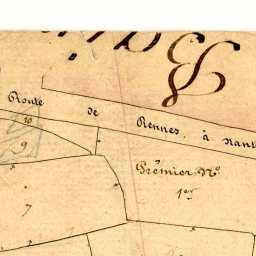 Route de Rennes à Nant
10
9
Premier No.
1er
7